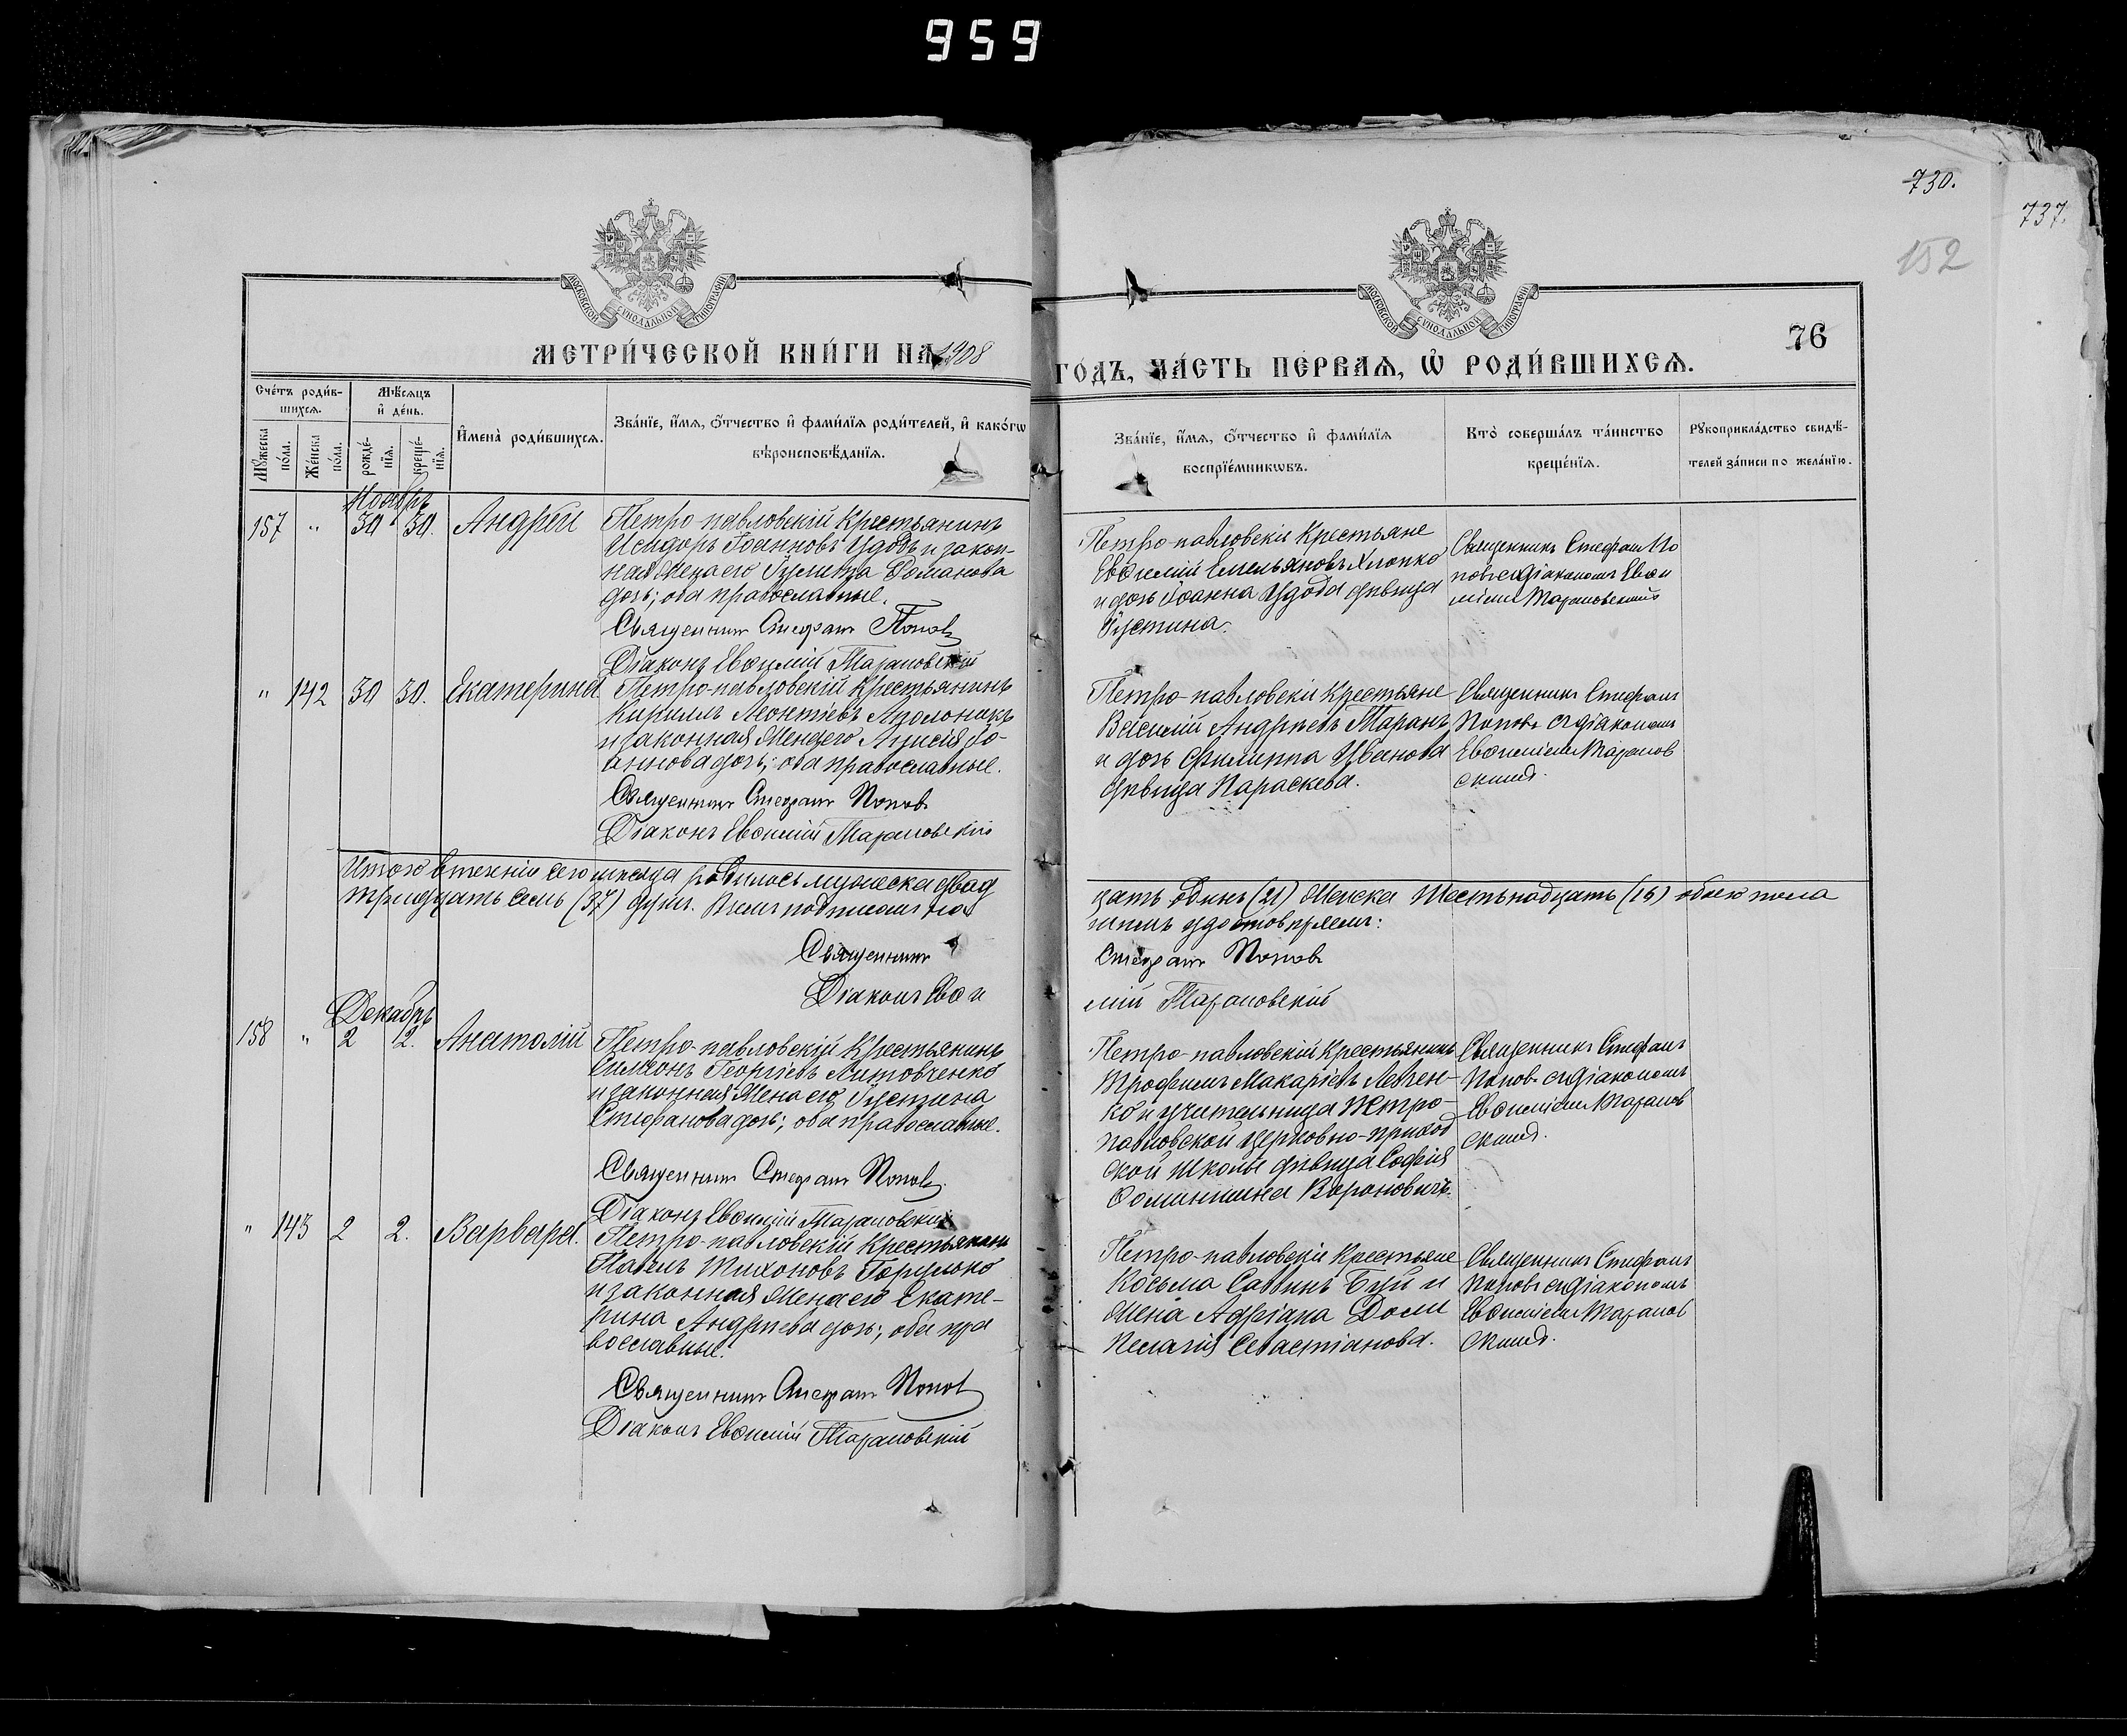 959
730.
737.
152
76
МОСКОВСКОЙ СУНОДАЛЬНОЙ ТИПОГРАФІИ
МОСКОВСКОЙ СУНОДАЛЬНОЙ ТИПОГРАФІИ
МЕТРИ́ЧЕСКОЙ КНИ́ГИ НА 1908
ГОДЪ, ЧА́СТЬ ПЕ́РВАѦ, Ѡ҆ РОДИ́ВШИХСѦ.
Сче́тъ роди́в-
шихсѧ.
Мꙋ́жеска
по́ла.
Же́нска
по́ла.
Мѣ́сѧцъ
и҆ де́нь.
рожде́-
нїѧ.
креще́-
нїѧ.
И҆мена̀ роди́вшихсѧ.
Зва́нїе, и҆́мѧ, ѻ҆́тчество и҆ фами́лїѧ роди́телей, и҆ како́гѡ
вѣроисповѣ́данїѧ.
Зва́нїе, и҆́мѧ, ѻ҆́тчество и҆ фами́лїѧ
воспрїе́мникѡвъ.
Кто̀ соверша́лъ та́инство
креще́нїѧ.
Рꙋкоприкла́дство свидѣ́-
телей за́писи по жела́нїю.
Ноябрь
157 " 30 30. Андрей
Петро-павловскій Крестьянинъ
Исидоръ Іоанновъ Удодъ и закон-
ная жена его Іулитта Романова
дочь; оба православные.
Священникъ Стефанъ Поповъ
Діаконъ Евѳимій Тарановскій
Петро-павловскіе Крестьяне
Евѳимій Емельяновъ Хлопко
и дочь Іоанна Удода дѣвица
Іустина.
Священникъ Стефанъ По
повъ съ діакономъ Евѳи
міемъ Тарановскимъ
" 142 30 30. Екатерина
Петро-павловскій Крестьянинъ
Кириллъ Леонтіевъ Аполоникъ
и законная жена его Анисія Іо-
аннова дочь; оба православные.
Священникъ Стефанъ Поповъ
Діаконъ Евѳимій Тарановскій
Петро-павловскіе Крестьяне
Василій Андреевъ Таранъ
и дочь Филиппа Иванова
дѣвица Параскева.
Священникъ Стефанъ
Поповъ съ діакономъ
Евѳиміемъ Таранов
скимъ.
Итого в теченіи сего мѣсяца родилось мужеска двад
цать одинъ (21) женска шестьнадцать (16) обоего пола
тридцать семь (37) душъ. В чемъ подписомъ на
шимъ удостовѣряемъ:
Священникъ Стефанъ Поповъ
Діаконъ Евѳи мій Тарановскій
Декабрь
158 " 2 2. Анатолій
Петро-павловскій Крестьянинъ
Симеонъ Георгіевъ Литовченко
и законная жена его Іустина
Стефанова дочь; оба православные.
Священникъ Стефанъ Поповъ.
Діаконъ Евѳимій Тарановскій
Петро-павловскій Крестьянинъ
Трофимъ Макаріевъ Левчен-
ко и учительница Петро-
павловской церковно-приход
ской школы дѣвица Софія
Вороновичъ.
Священникъ Стефанъ
Поповъ съ діакономъ
Евѳиміемъ Таранов
скимъ.
" 143 2 2. Варвара.
Петро-павловскій Крестьянинъ
Павелъ Тихоновъ Горулько
и законная жена его Екате-
рина Андреева дочь; оба пра
вославные.
Священникъ Стефанъ Поповъ
Діаконъ Евѳимій Тарановскій
Петро-павловскіе Крестьяне
Косьма Саввинъ Буй и
жена Адріана
Пелагія Севастіанова.
Священникъ Стефанъ
Поповъ съ діакономъ
Евѳиміемъ Таранов
скимъ.